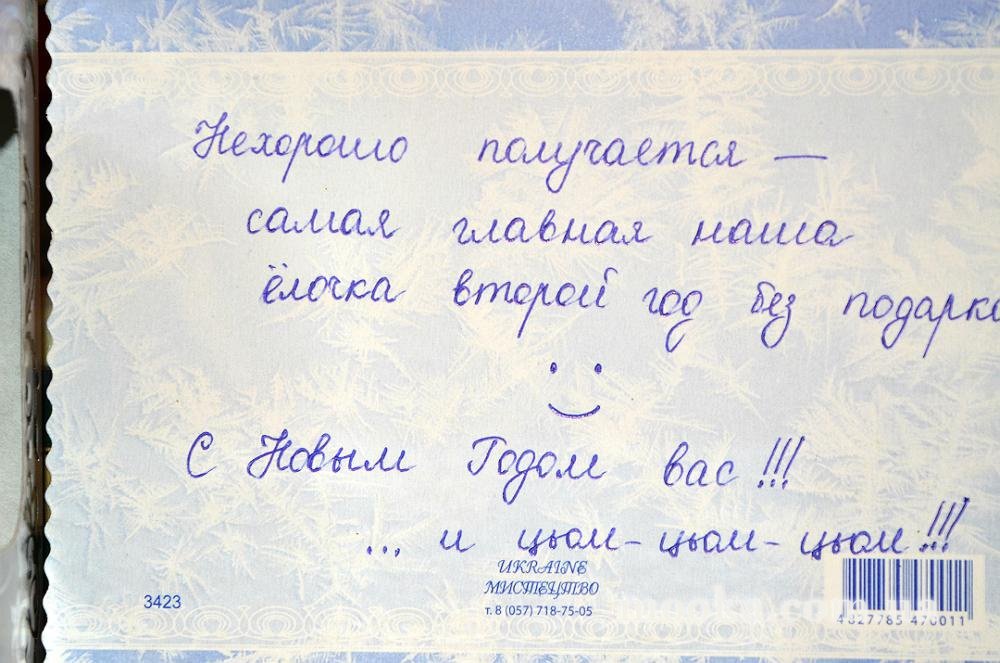 Нехорошо получается —
самая главная наша
ёлочка второй год без подарко
С Новым Годом вас!!!
... и цьом-цьом-цьом!!!
UKRAINE
МИСТЕЦТВО
т. 8 (057) 718-75-05
3423